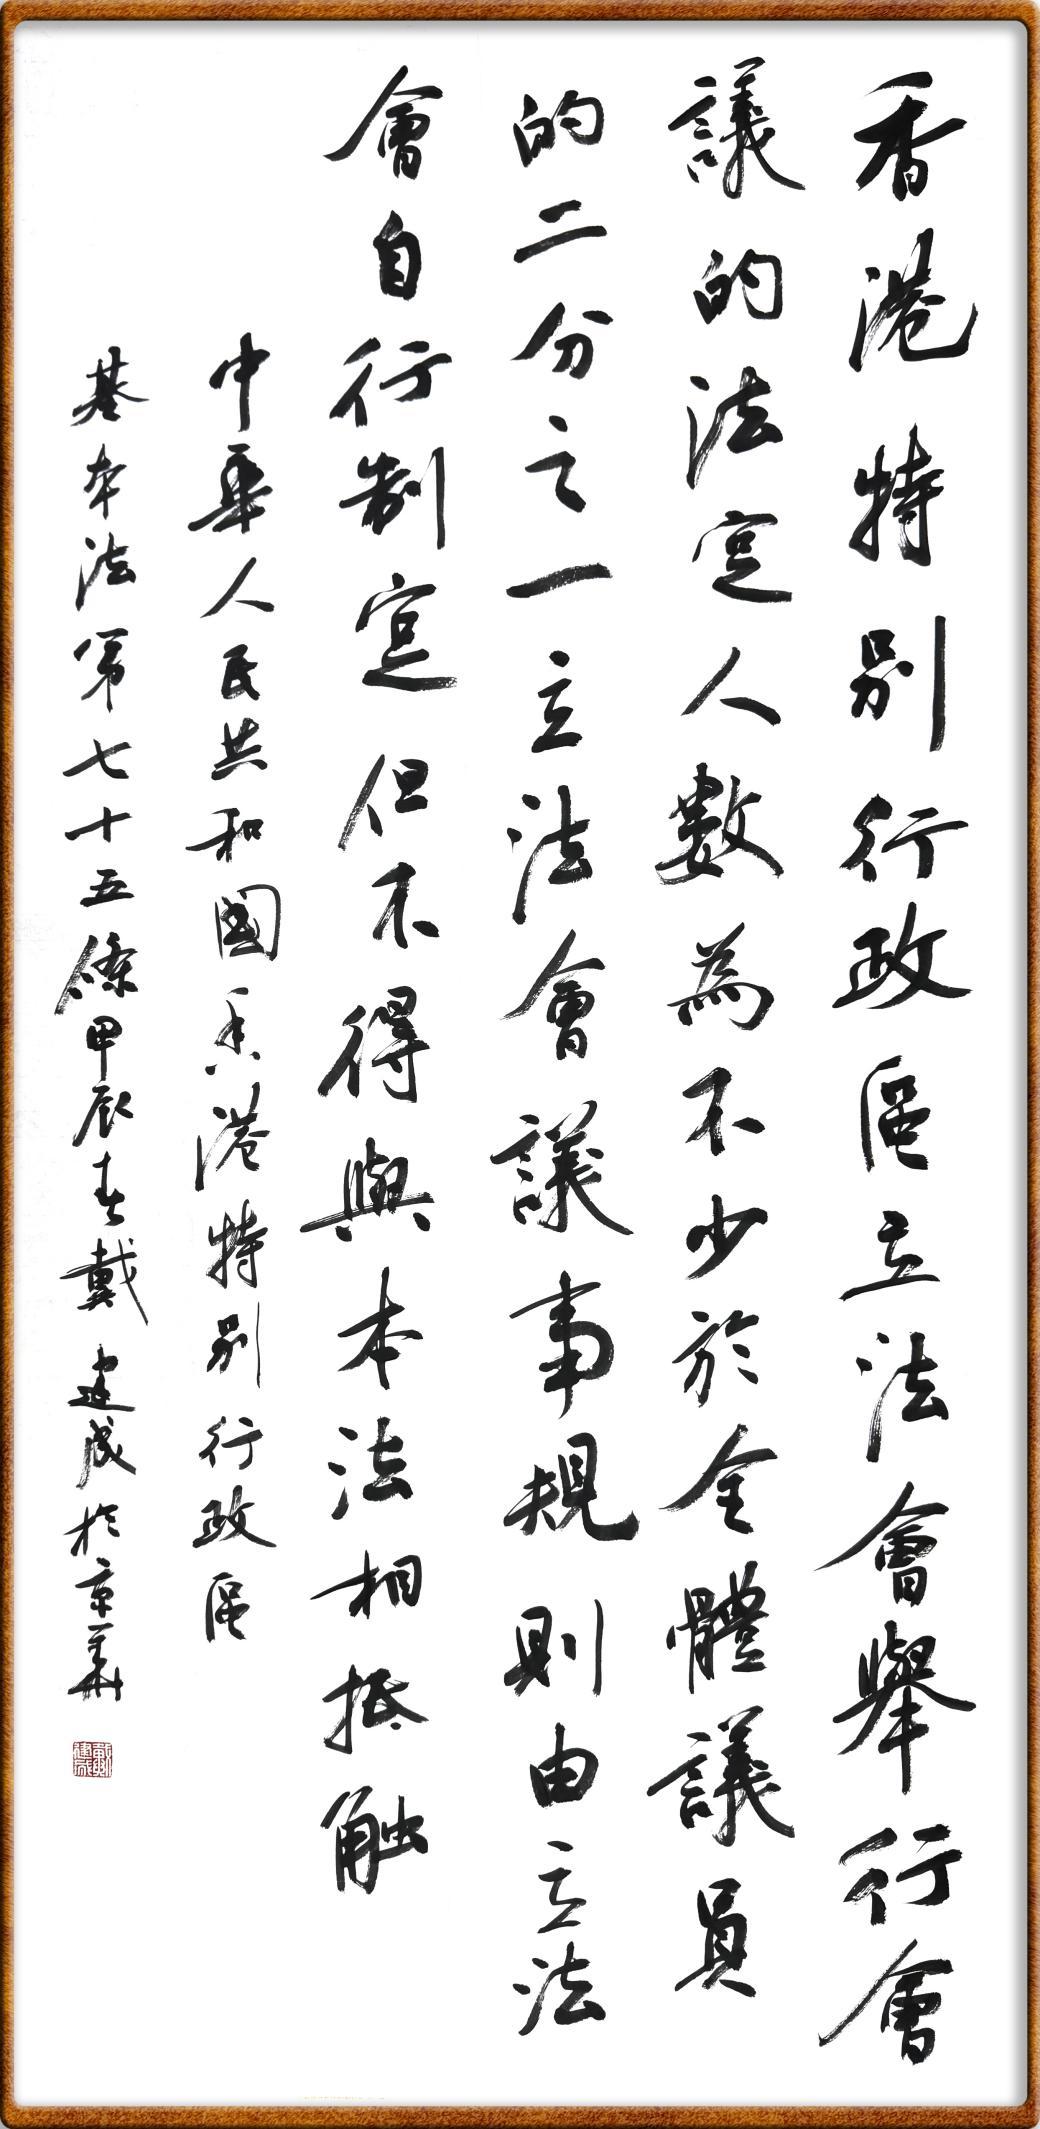 香港特别行政區立法會舉行會
議的法定人數為不少於全體議員
的二分之一立法會議事規則由立法
會自行制定但不得與本法相抵触
中華人民共和國香港特别行政區
基本法第七十五條甲辰春戴建成於京華
戴建成